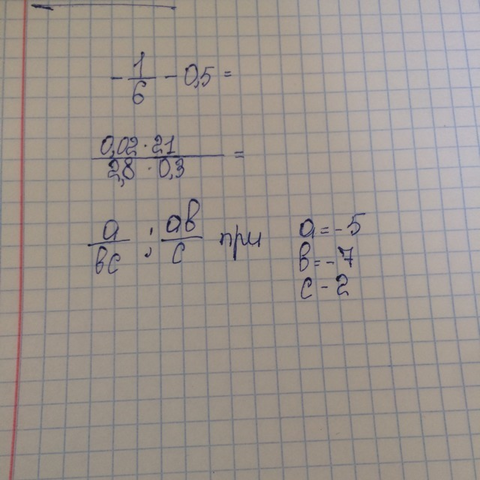 -1/6 - 0,5 =
0,02 · 21 / 2,8 · 0,3 =
a/bc : ab/c при a = -5
b = -7
c - 2